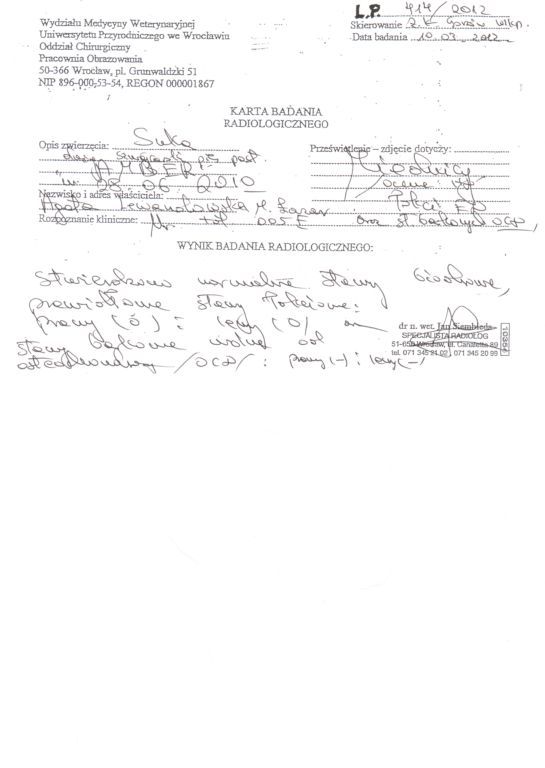 L.P. 414/2012
Wydziału Medycyny Weterynaryjnej
Uniwersytetu Przyrodniczego we Wrocławiu
Oddział Chirurgiczny
Pracownia Obrazowania
50-366 Wrocław, pl. Grunwaldzki 51
NIP 896-000-53-54, REGON 000001867
Skierowanie Z.K. Gorzów Wlkp.
Data badania 10.03.2012
KARTA BADANIA
RADIOLOGICZNEGO
Opis zwierzęcia: Suka
szwajcarski pies past.
"AMBER"
ur. 28.06.2010
Nazwisko i adres właściciela:
Lewandowska
Rozpoznanie kliniczne: Nr. tat. 005E
Prześwietlenie – zdjęcie dotyczy:
Miednicy
ocena:
łokci ED
oraz st. barkowych OCD,
WYNIK BADANIA RADIOLOGICZNEGO:
Stwierdzono normalne stawy biodrowe,
prawidłowe stawy łokciowe:
prawy (0) i lewy (0)
stawy barkowe wolne od
/OCD/: prawy (-) i lewy (-)
dr n. wet. Jan Siembieda
SPECJALISTA RADIOLOG
tel. 071 345 21 02, 071 345 20 99